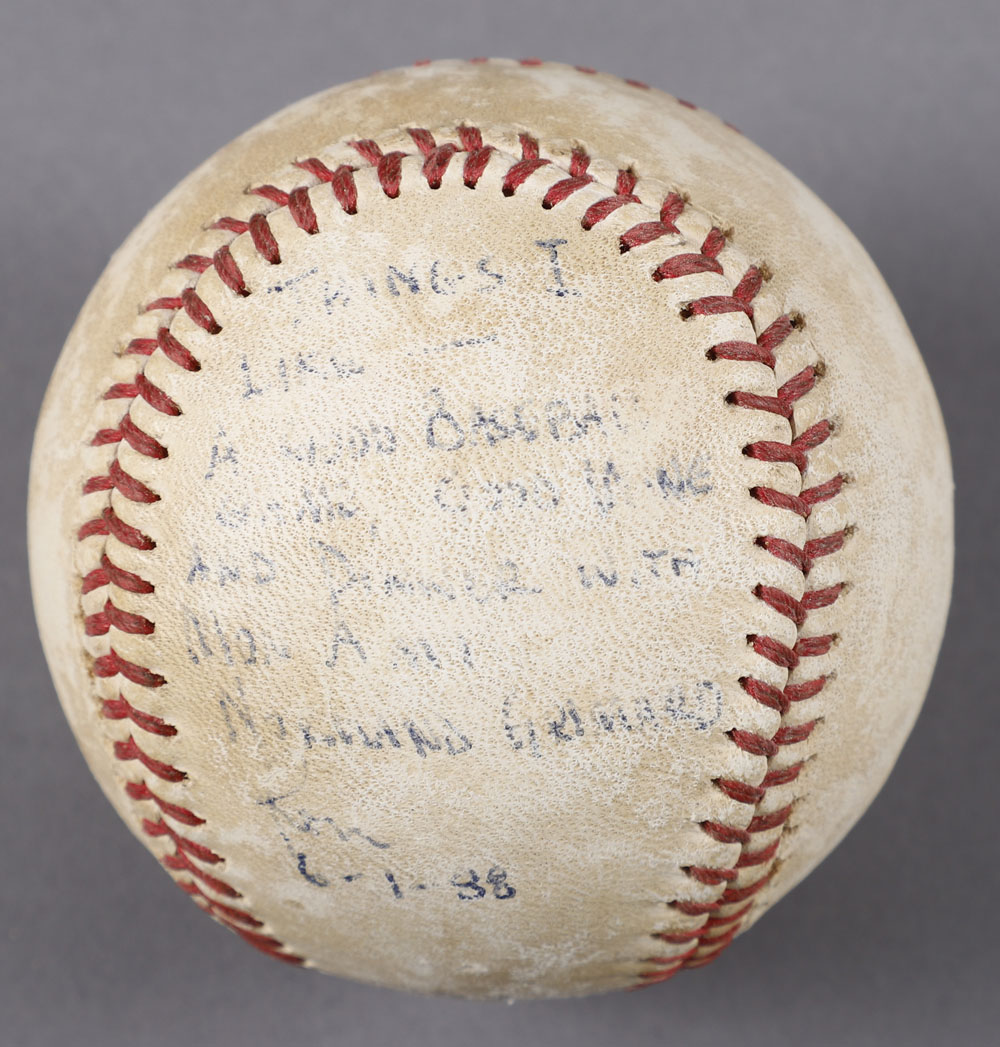 THINGS I
LIKE —
A GOOD BASEBALL
GAME, GOOD WINE
AND DINNER WITH
MON AMI
RAYMOND GRIMARD
Tom
6-1-88